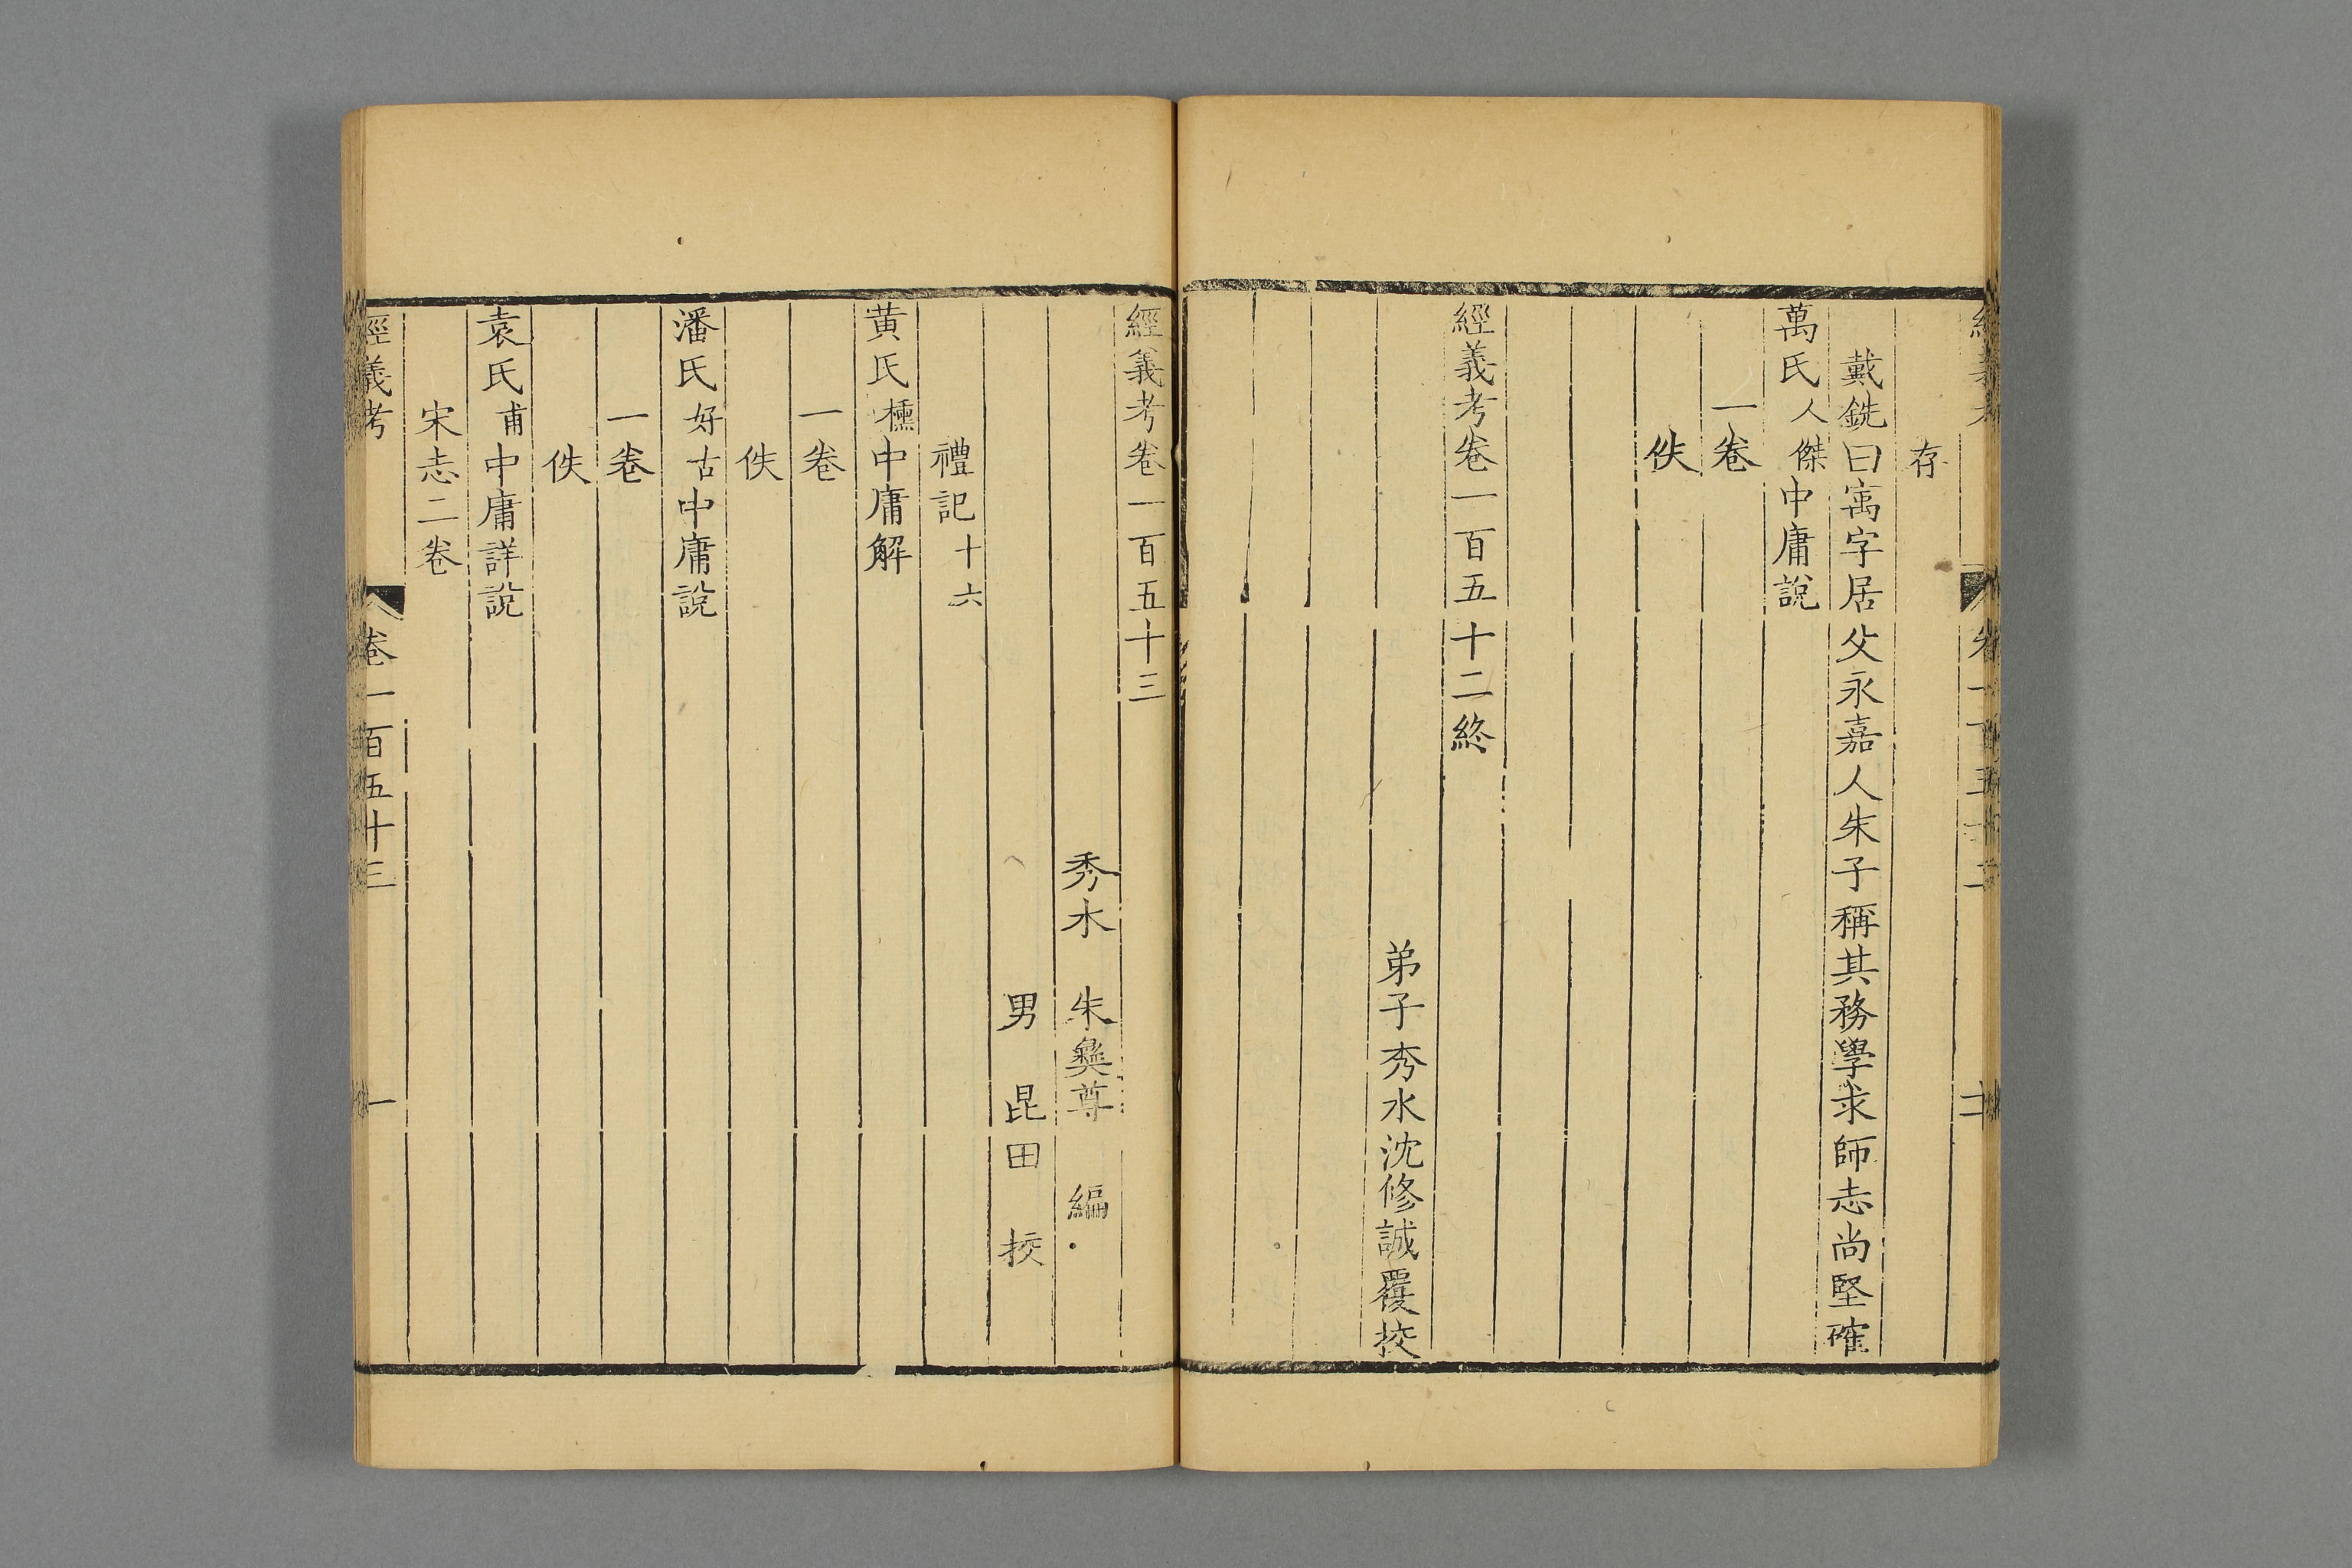 存
戴銑曰㝢字居父永嘉人朱子稱其務學求師志尚堅確
萬氏人傑中庸說
一卷
佚
經義考卷一百五十二終
弟子秀水沈修誠覆挍
經義考卷一百五十三
秀水 朱彝尊 編
男 昆田 挍
禮記十六
黃氏櫄中庸解
一卷
佚
潘氏好古中庸說
一卷
佚
袁氏甫中庸詳說
宋志二卷
經義考 卷一百五十三 一